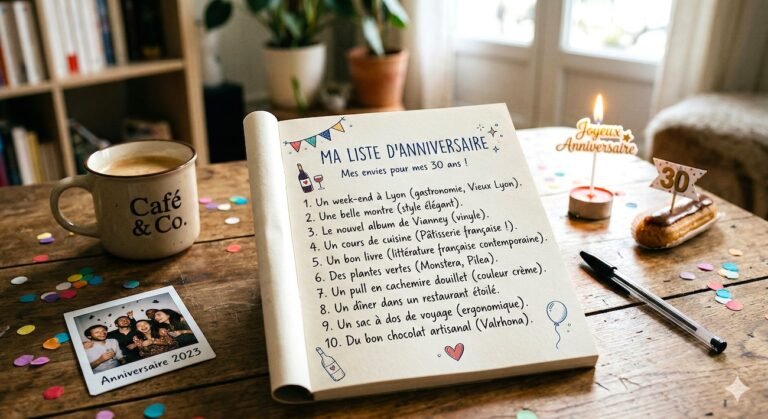 MA LISTE D'ANNIVERSAIRE
Mes envies pour mes 30 ans !
1. Un week-end à Lyon (gastronomie, Vieux Lyon).
2. Une belle montre (style élégant).
3. Le nouvel album de Vianney (vinyle).
4. Un cours de cuisine (Pâtisserie française !).
5. Un bon livre (littérature française contemporaine).
6. Des plantes vertes (Monstera, Pilea).
7. Un pull en cachemire douillet (couleur crème).
8. Un dîner dans un restaurant étoilé.
9. Un sac à dos de voyage (ergonomique).
10. Du bon chocolat artisanal (Valrhona).
Café
& Co.
Anniversaire 2023
Joyeux
Anniversaire
30